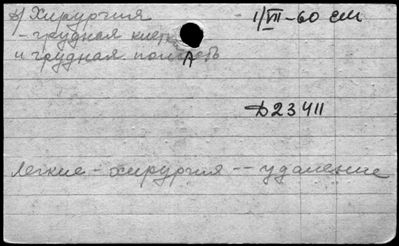 +) Хирургия - 1/VII-60 см
- грудная клетка
и грудная полость
А
Д23411
Легкие - хирургия -- удаление